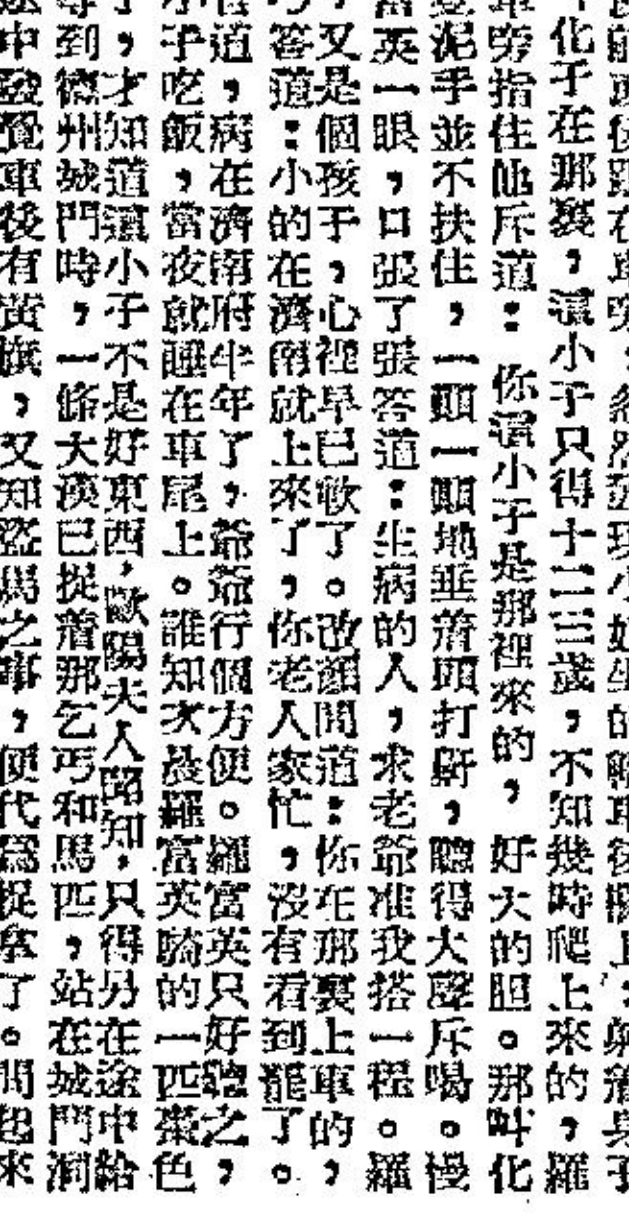 化子在那裏，這小子只得十二三歲，不知幾時爬上來的，羅
車旁指住他斥道：你這小子是那裡來的，好大的胆。那叫化
泥手並不扶住，一顚一顚地垂着頭打鼾，聽得大聲斥喝。慢
富英一眼，口張了張答道：生病的人，求老爺准我搭一程。羅
又是個孩子，心裡早已軟了。改顏問道：你在那裏上車的，
答道：小的在濟南就上來了，你老人家忙，沒有看到罷了。
道，病在濟南府半年了，爺爺行個方便。羅富英只好聽之，
小子吃飯，當夜就睡在車尾上。誰知次晨羅富英騎的一匹棗色
，才知道這小子不是好東西，歐陽夫人聞知，只得另在途中給
到德州城門時，一條大漢已捉着那乞丐和馬匹，站在城門洞
中發覺車後有黃旗，又知盜馬之事，便代爲捉拿了。問起來